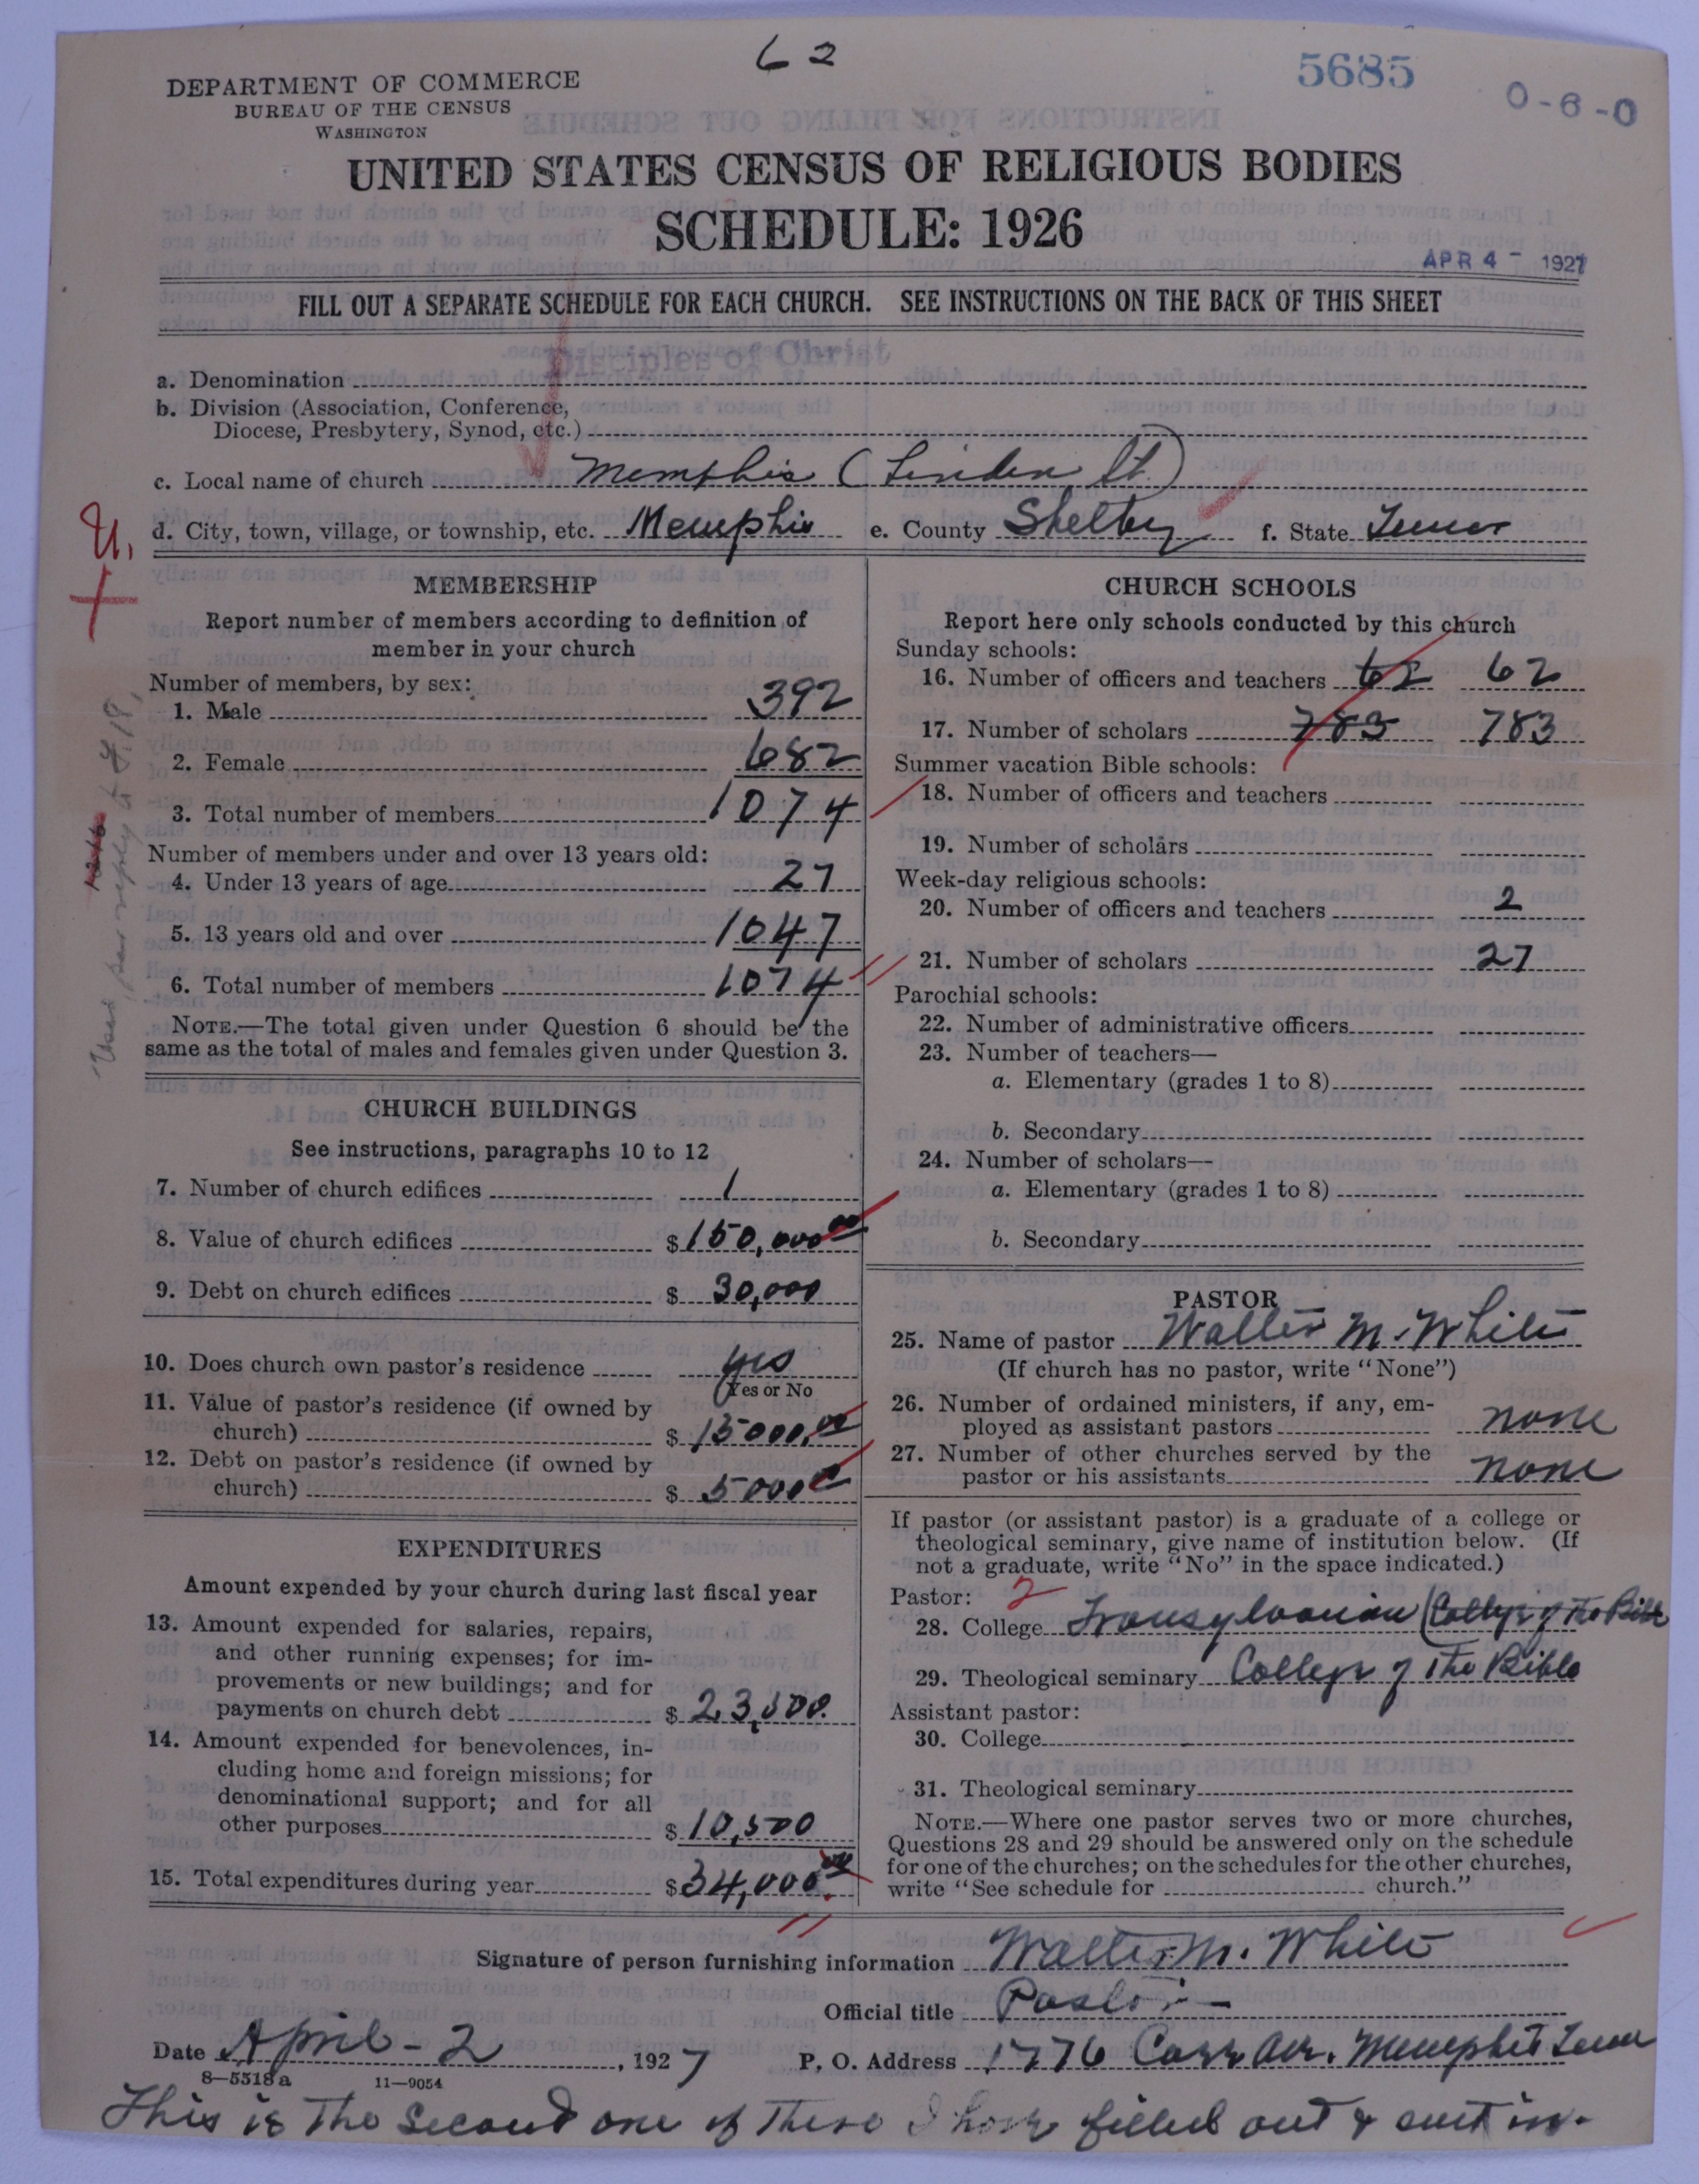 62
5685
0-6-0
DEPARTMENT OF COMMERCE
BUREAU OF THE CENSUS
WASHINGTON
UNITED STATES CENSUS OF RELIGIOUS BODIES
SCHEDULE: 1926
APR 4 - 1927
FILL OUT A SEPARATE SCHEDULE FOR EACH CHURCH. SEE INSTRUCTIONS ON THE BACK OF THIS SHEET
Disciples of Christ
a. Denomination
b. Division (Association, Conference,
Diocese, Presbytery, Synod, etc.)
c. Local name of church Memphis (Linden St.)
d. City, town, village, or township, etc. Memphis e. County Shelby f. State Tenn
U.
MEMBERSHIP
Report number of members according to definition of
member in your church
Number of members, by sex:
1. Male 392
2. Female 682
3. Total number of members 1074
Number of members under and over 13 years old:
4. Under 13 years of age 27
5. 13 years old and over 1047
6. Total number of members 1074
NOTE.—The total given under Question 6 should be the
same as the total of males and females given under Question 3.
CHURCH BUILDINGS
See instructions, paragraphs 10 to 12
7. Number of church edifices 1
8. Value of church edifices $150,000 00
9. Debt on church edifices $ 30,000
10. Does church own pastor's residence yes
Yes or No
11. Value of pastor's residence (if owned by
church) $ 15000.00
12. Debt on pastor's residence (if owned by
church) $ 5000
EXPENDITURES
Amount expended by your church during last fiscal year
13. Amount expended for salaries, repairs,
and other running expenses; for im-
provements or new buildings; and for
payments on church debt $ 23,500.
14. Amount expended for benevolences, in-
cluding home and foreign missions; for
denominational support; and for all
other purposes $ 10,500
15. Total expenditures during year $34,000.00
CHURCH SCHOOLS
Report here only schools conducted by this church
Sunday schools:
16. Number of officers and teachers 62 62
17. Number of scholars 783 783
Summer vacation Bible schools:
18. Number of officers and teachers
19. Number of scholars
Week-day religious schools:
20. Number of officers and teachers 2
21. Number of scholars 27
Parochial schools:
22. Number of administrative officers
23. Number of teachers—
a. Elementary (grades 1 to 8)
b. Secondary
24. Number of scholars—
a. Elementary (grades 1 to 8)
b. Secondary
PASTOR
25. Name of pastor Walter M. White
(If church has no pastor, write "None")
26. Number of ordained ministers, if any, em-
ployed as assistant pastors none
27. Number of other churches served by the
pastor or his assistants none
If pastor (or assistant pastor) is a graduate of a college or
theological seminary, give name of institution below. (If
not a graduate, write "No" in the space indicated.)
Pastor: 2
28. College Transylvanian (College of The Bible
29. Theological seminary College of The Bible
Assistant pastor:
30. College
31. Theological seminary
NOTE.—Where one pastor serves two or more churches,
Questions 28 and 29 should be answered only on the schedule
for one of the churches; on the schedules for the other churches,
write "See schedule for church."
Signature of person furnishing information Walter M. White
Official title Pastor
Date April - 2, 1927 P. O. Address 1776 Carr Ave. Memphis Tenn
8—5518a 11—9054
This is The Second one of These I have filled out & sent in.